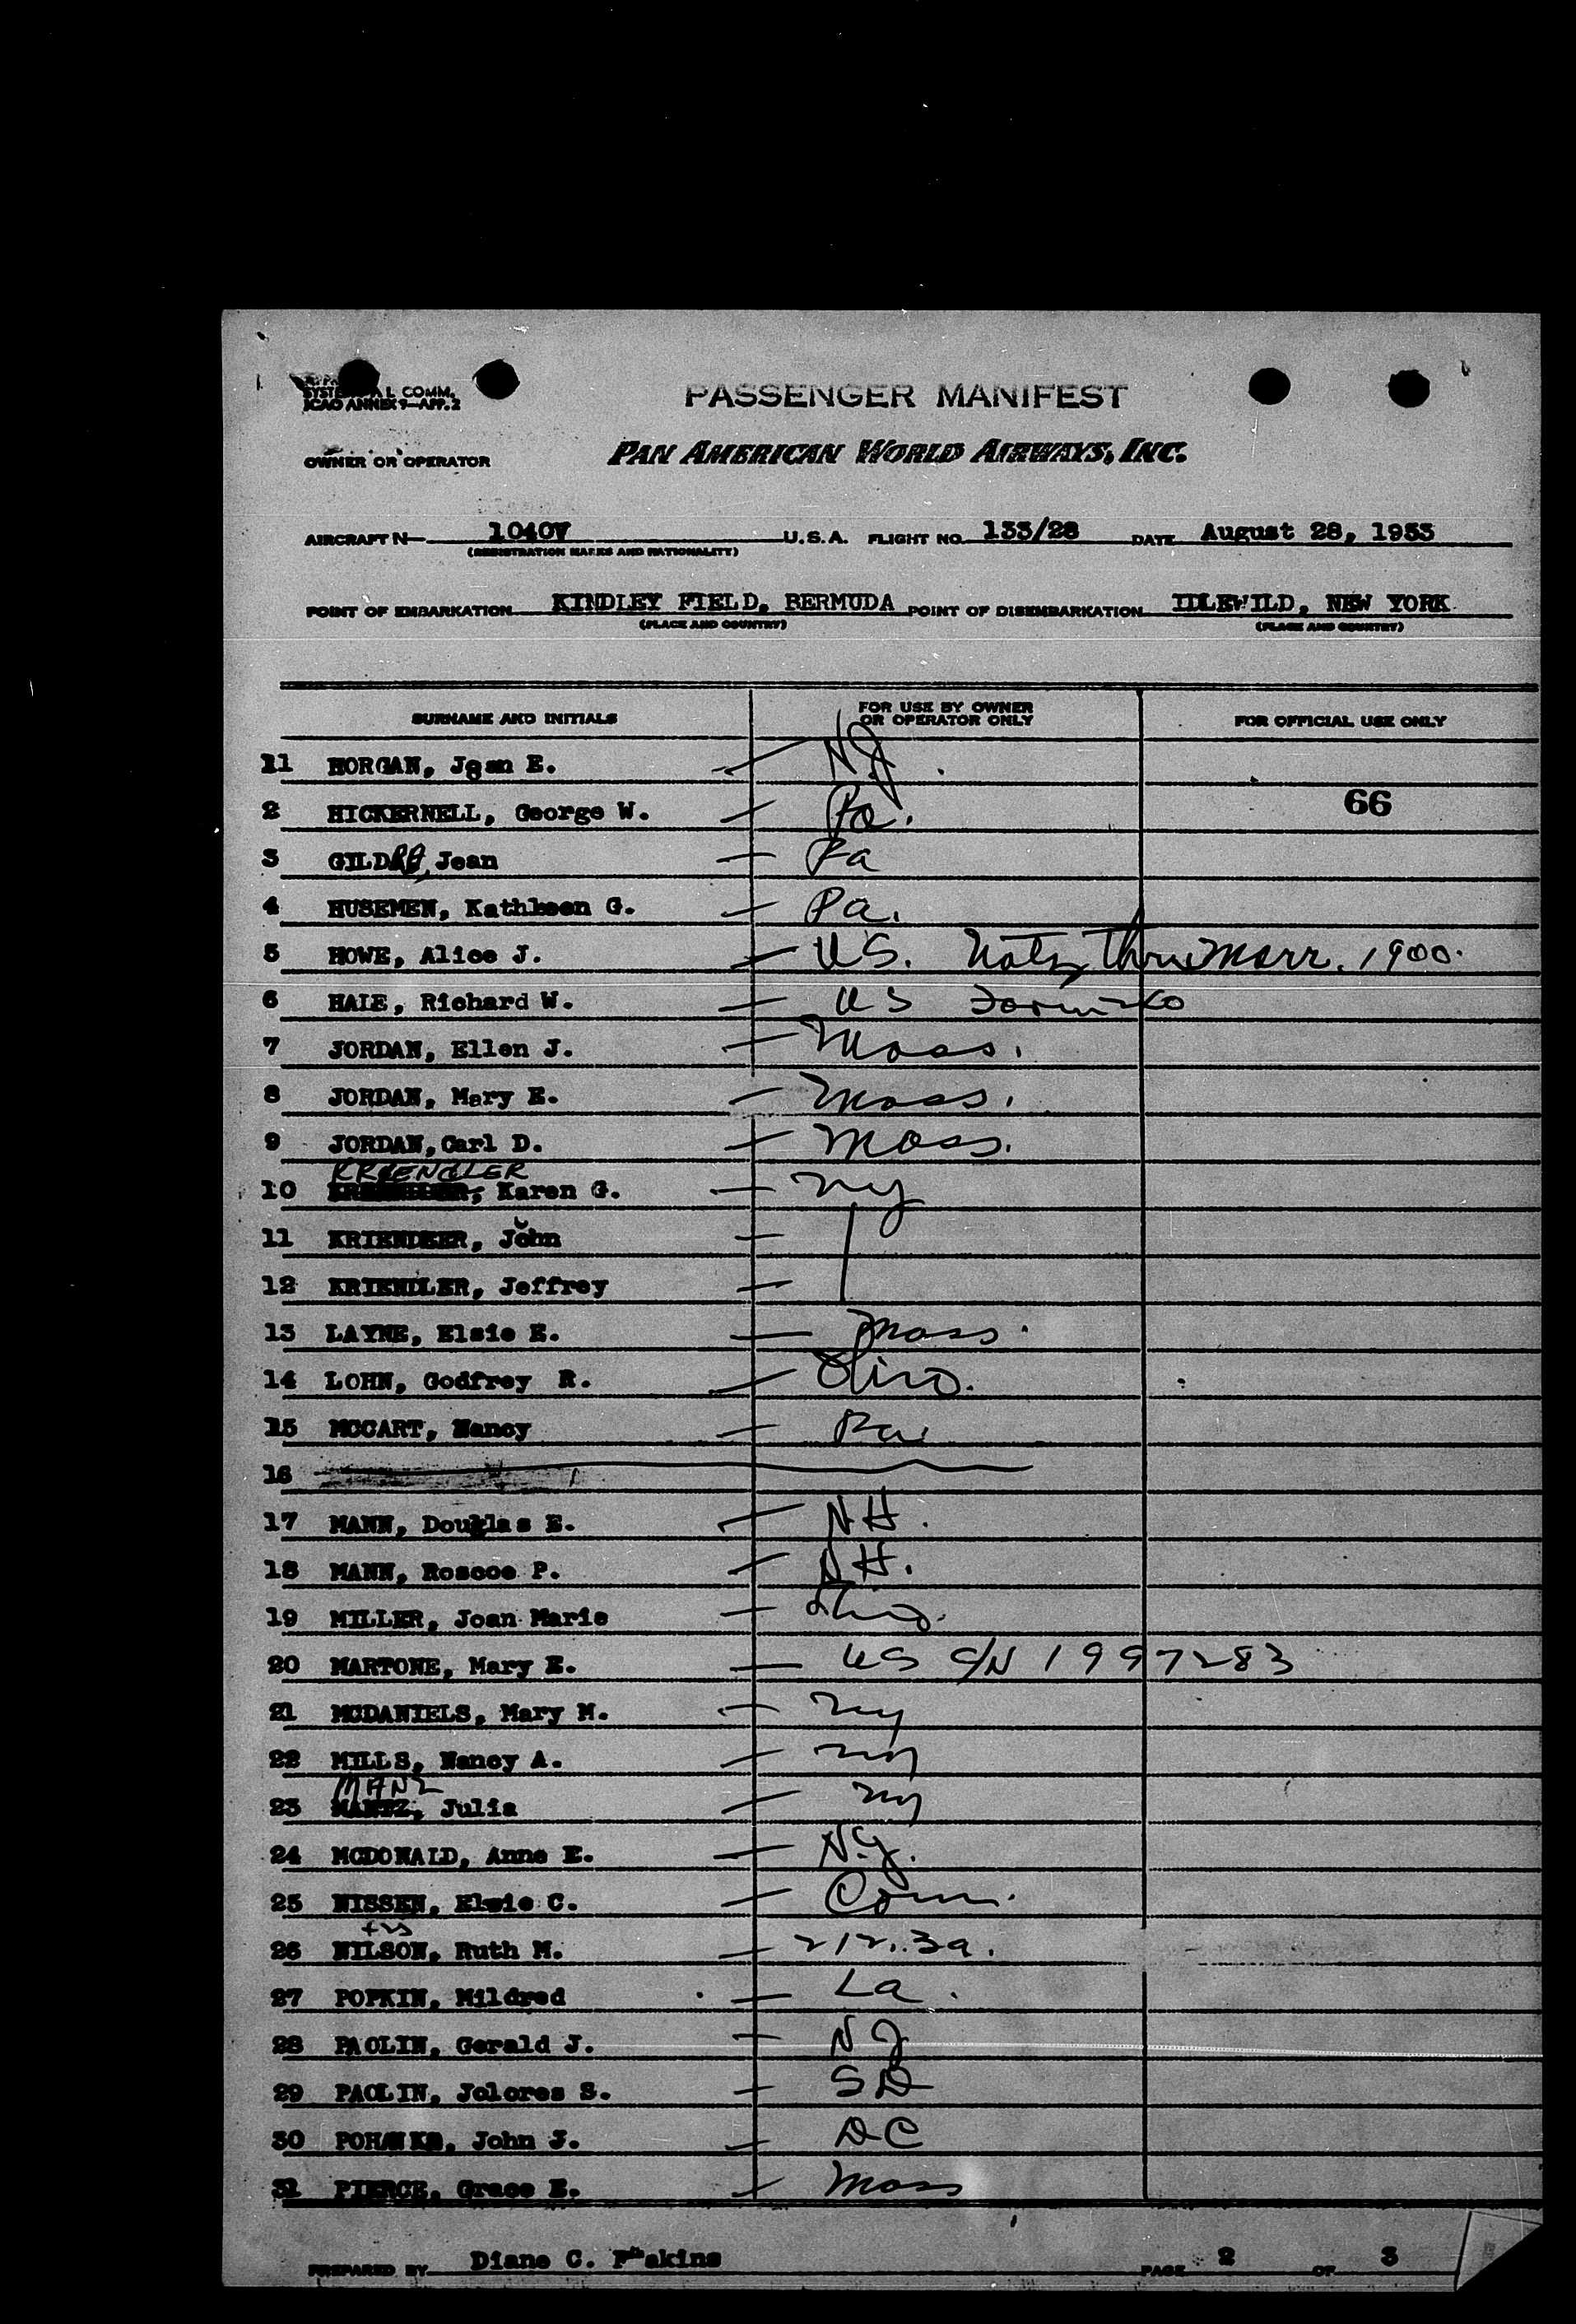 SYSTEM L COMM.
ICAO ANNEX 9—APP. 2
PASSENGER MANIFEST
OWNER OR OPERATOR PAN AMERICAN WORLD AIRWAYS, INC.
AIRCRAFT N— 1040V U.S.A. FLIGHT NO. 133/28 DATE August 28, 1953
(REGISTRATION MARKS AND NATIONALITY)
POINT OF EMBARKATION KINDLEY FIELD, BERMUDA POINT OF DISEMBARKATION IDLEWILD, NEW YORK
(PLACE AND COUNTRY) (PLACE AND COUNTRY)
SURNAME AND INITIALS FOR USE BY OWNER OR OPERATOR ONLY FOR OFFICIAL USE ONLY
11 HORGAN, Jean E. NJ
2 HICKERNELL, George W. Pa. 66
3 Jean Pa
4 HUSEMEN, Kathleen G. Pa.
5 HOWE, Alice J. US. Natz Thru Marr. 1900.
6 HALE, Richard W. US
7 JORDAN, Ellen J. Mass.
8 JORDAN, Mary E. Mass.
9 JORDAN, Carl D. Mass.
10 Karen G. NY
11 KRIENDEER, John
12 KRIENDLER, Jeffrey
13 LAYNE, Elsie E. Mass.
14 LOHN, Godfrey R. Ohio.
15 MCCART, Nancy Pa
16
17 MANN, Douglas E. NH.
18 MANN, Roscoe P. NH.
19 MILLER, Joan Marie Ohio.
20 MARTONE, Mary E. US C/N 1997283
21 MCDANIELS, Mary M. NY
22 MILLS, Nancy A. NY
23 Julia NY
24 MCDONALD, Anne E. N.Y.
25 NISSEN, Elsie C. Conn.
26 NILSON, Ruth M. 212.3a.
27 POPKIN, Mildred La.
28 PAOLIN, Gerald J. NJ
29 PAOLIN, Jolores S. SD
30 John J. DC
31 PIERCE, Grace E. Mass
PREPARED BY Diane C. PAGE 2 OF 3